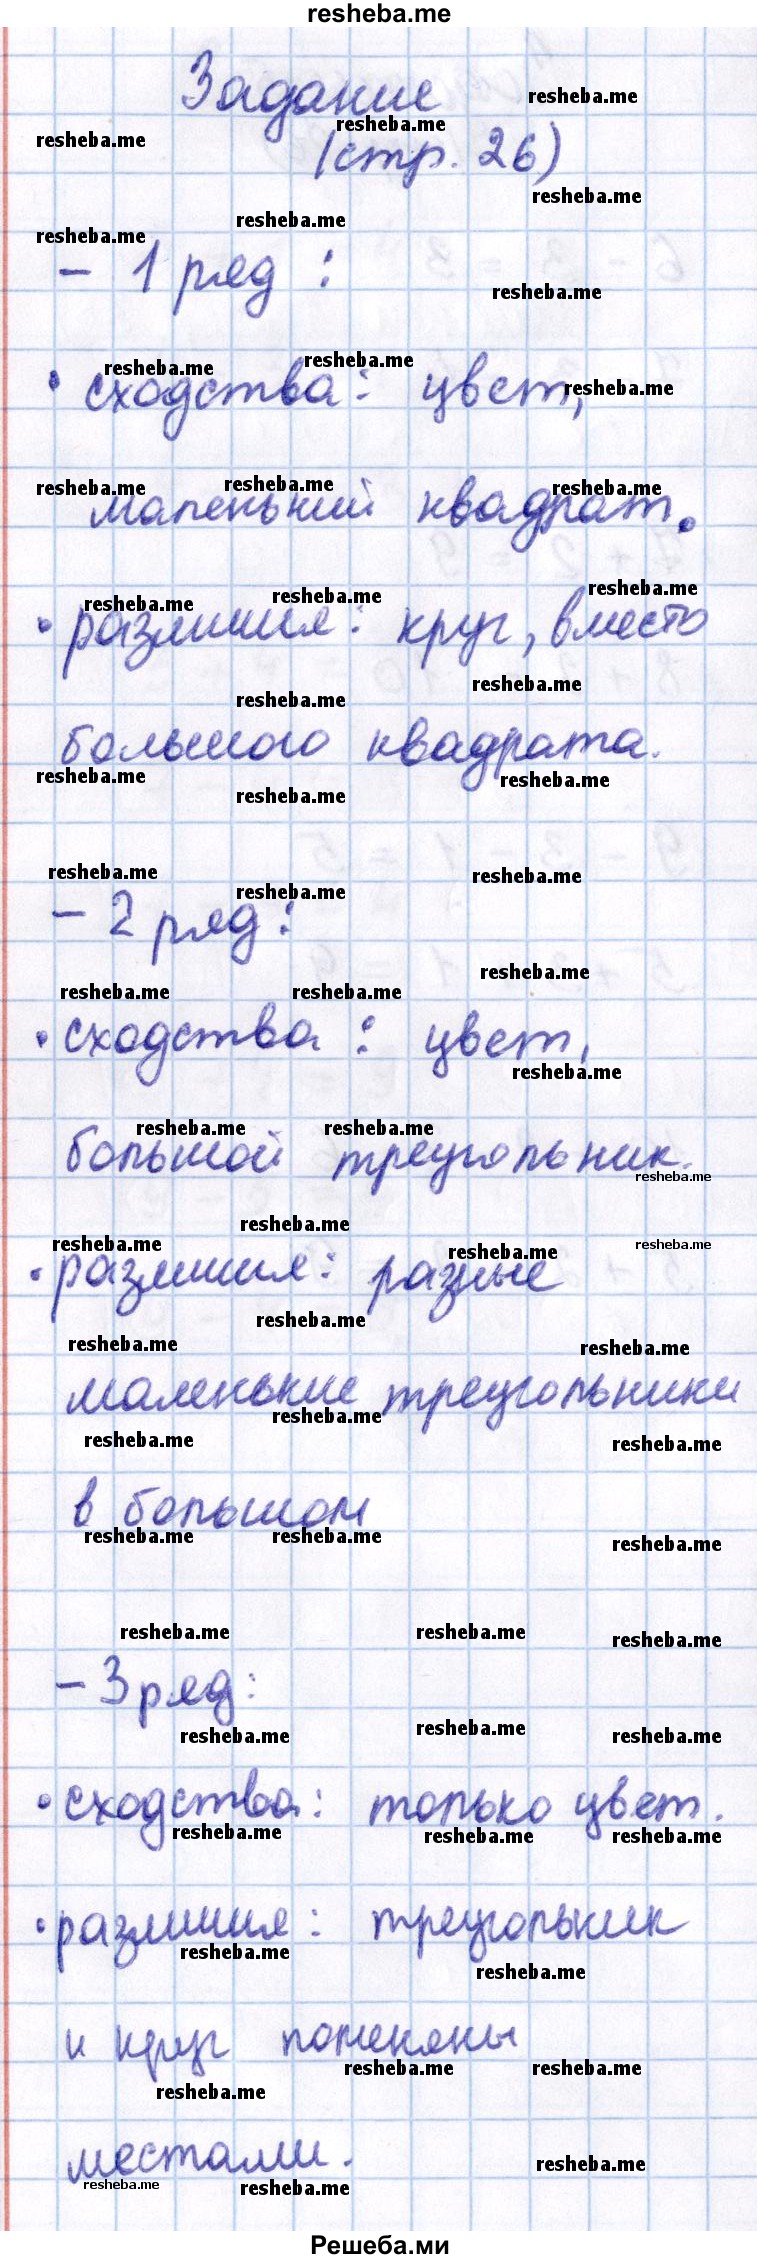 resheba.me
Задание
(стр. 26)
- 1 ряд :
• сходства: цвет,
маленький квадрат.
• различия: круг, вместо
большого квадрата.
- 2 ряд:
• сходства : цвет,
большой треугольник.
• различия: разные
маленькие треугольники
в большом
- 3 ряд:
• сходства: только цвет.
• различия: треугольник
и круг поменяны
местами.
Решеба.ми